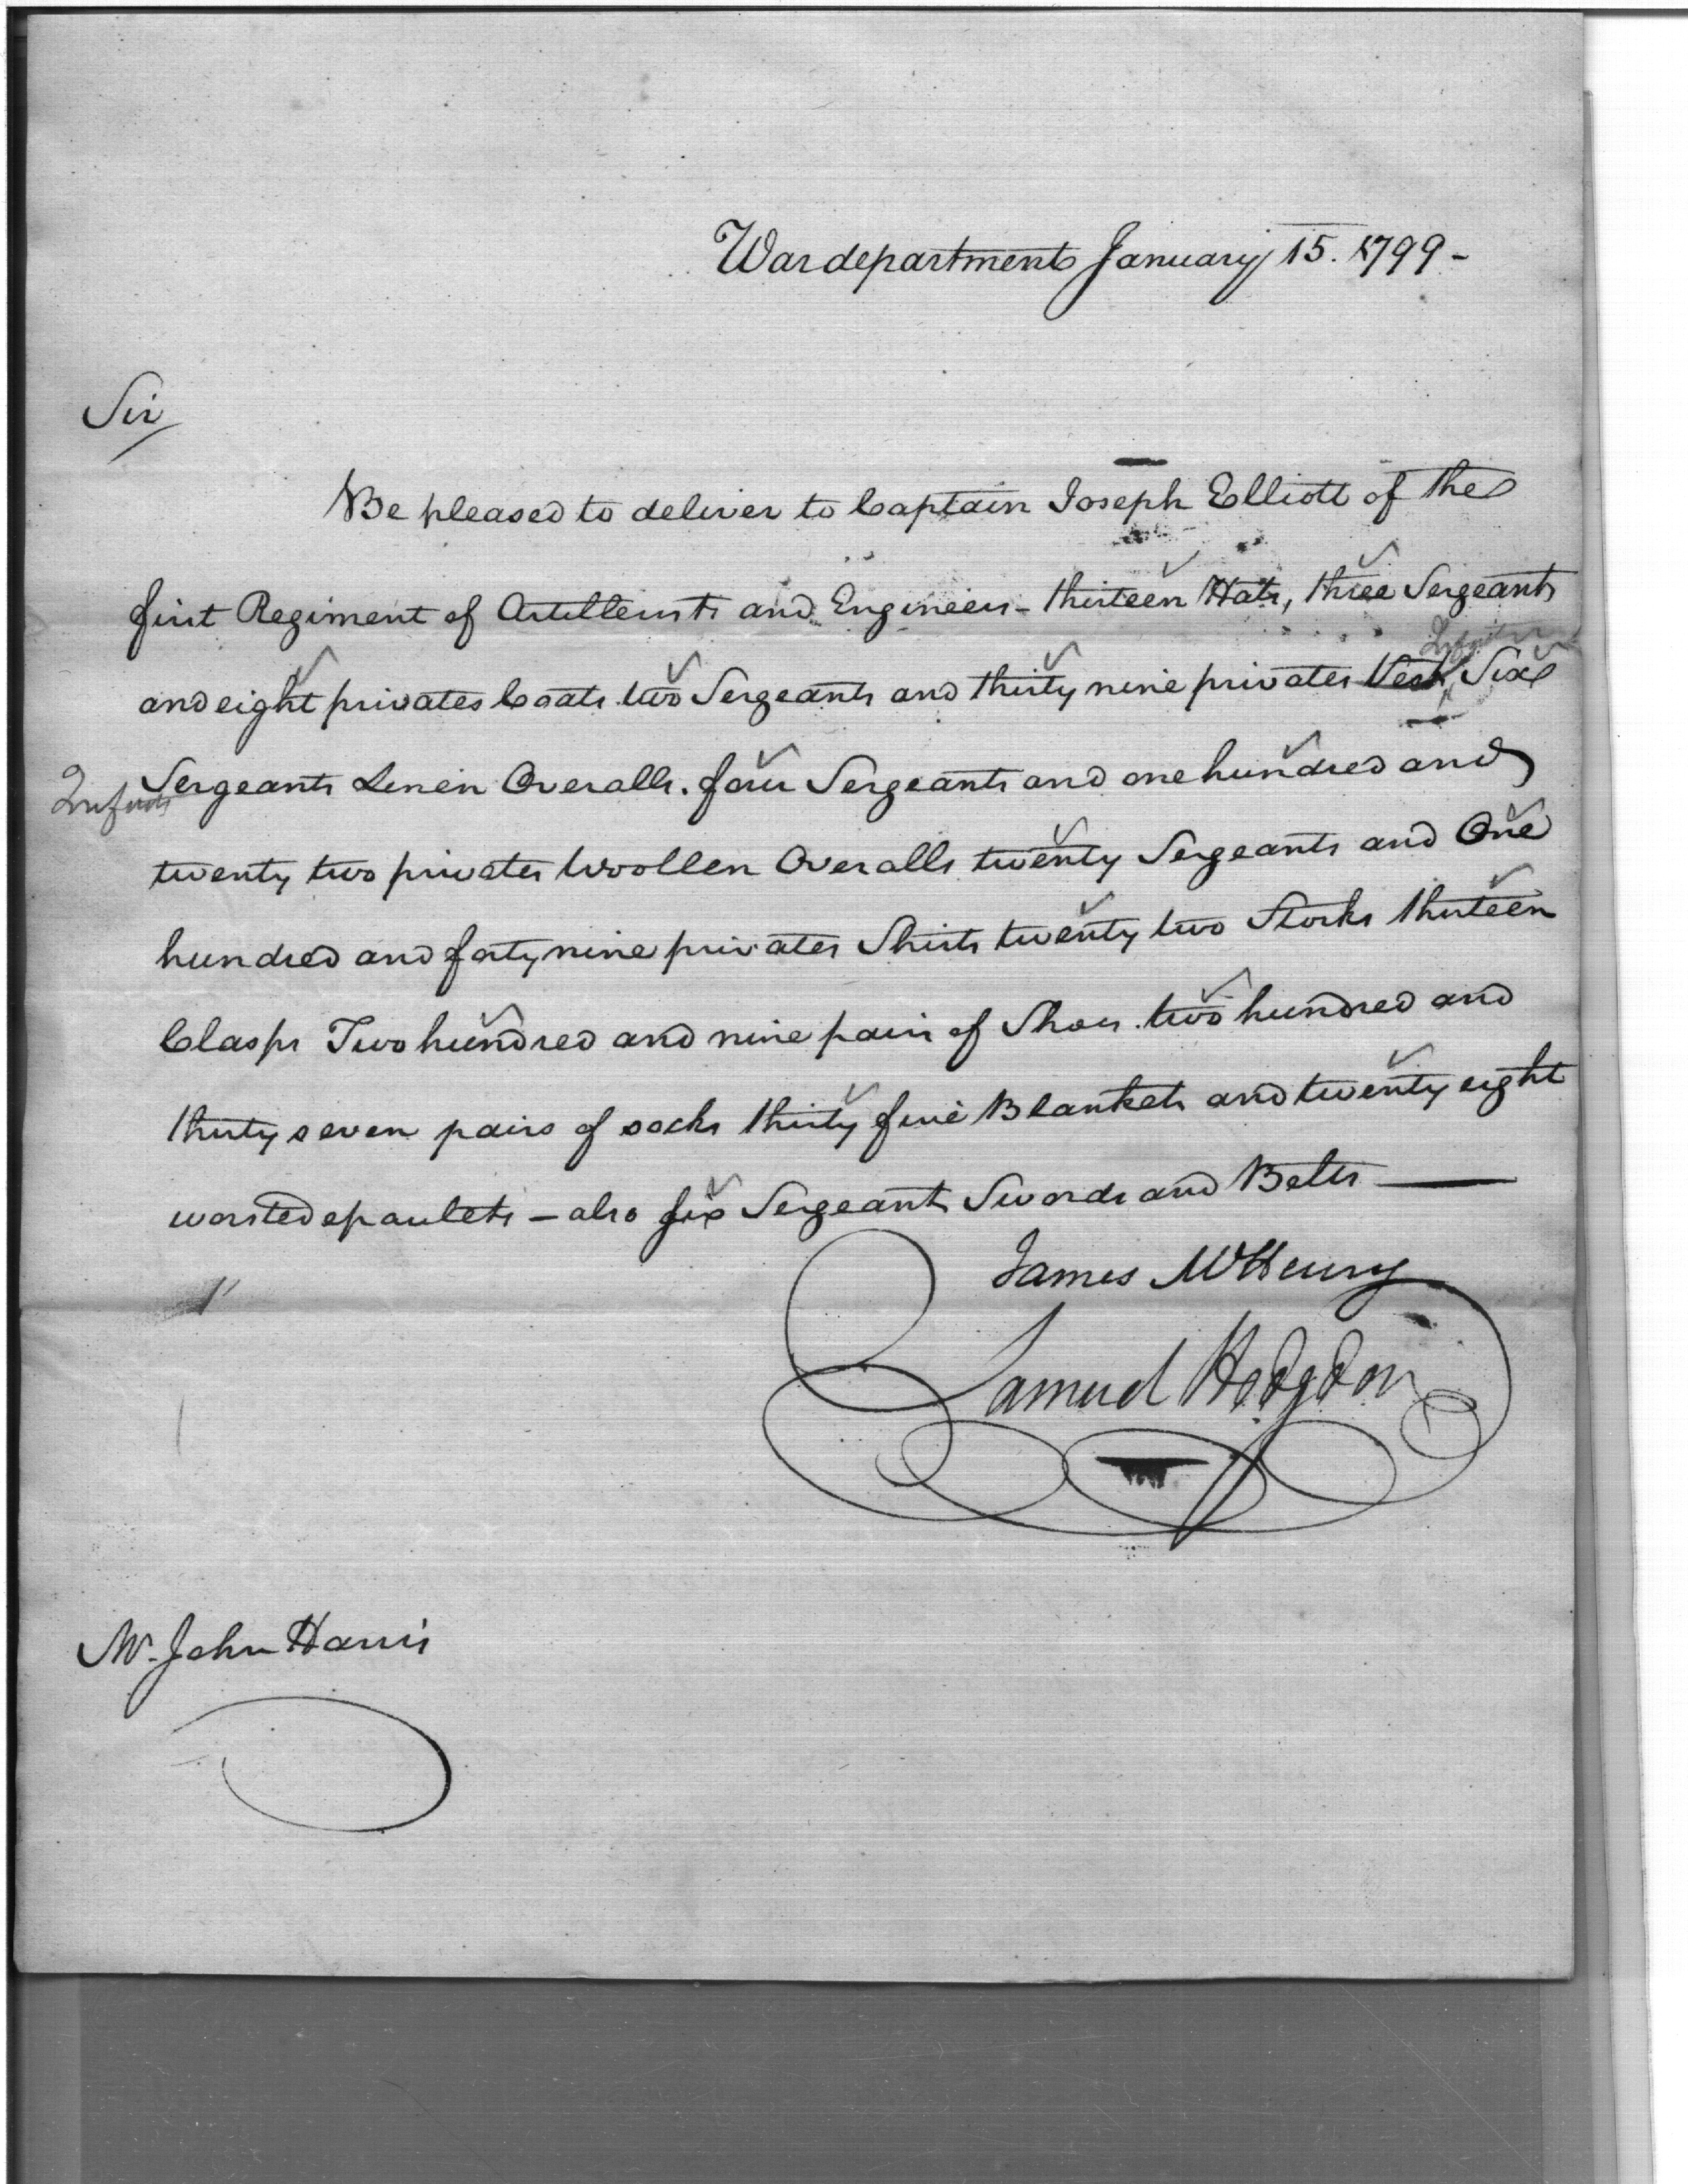 War department January 15. 1799-
Sir
Be pleased to deliver to Captain Joseph Elliott of the
first Regiment of Artillerists and Engineers - thirteen Hats, three Sergeants
and eight privates Coats two Sergeants and thirty nine privates Vests Six
Sergeants Linen Overalls. four Sergeants and one hundred and
twenty two privates Woollen Overalls twenty Sergeants and One
hundred and forty nine privates Shirts twenty two Stocks thirteen
Clasps Two hundred and nine pairs of Shoes. two hundred and
thirty seven pairs of socks thirty five Blankets and twenty eight
worsted epaulets - also six Sergeants Swords and Belts
James McHenry
Samuel Hodgdon
Mr. John Harris